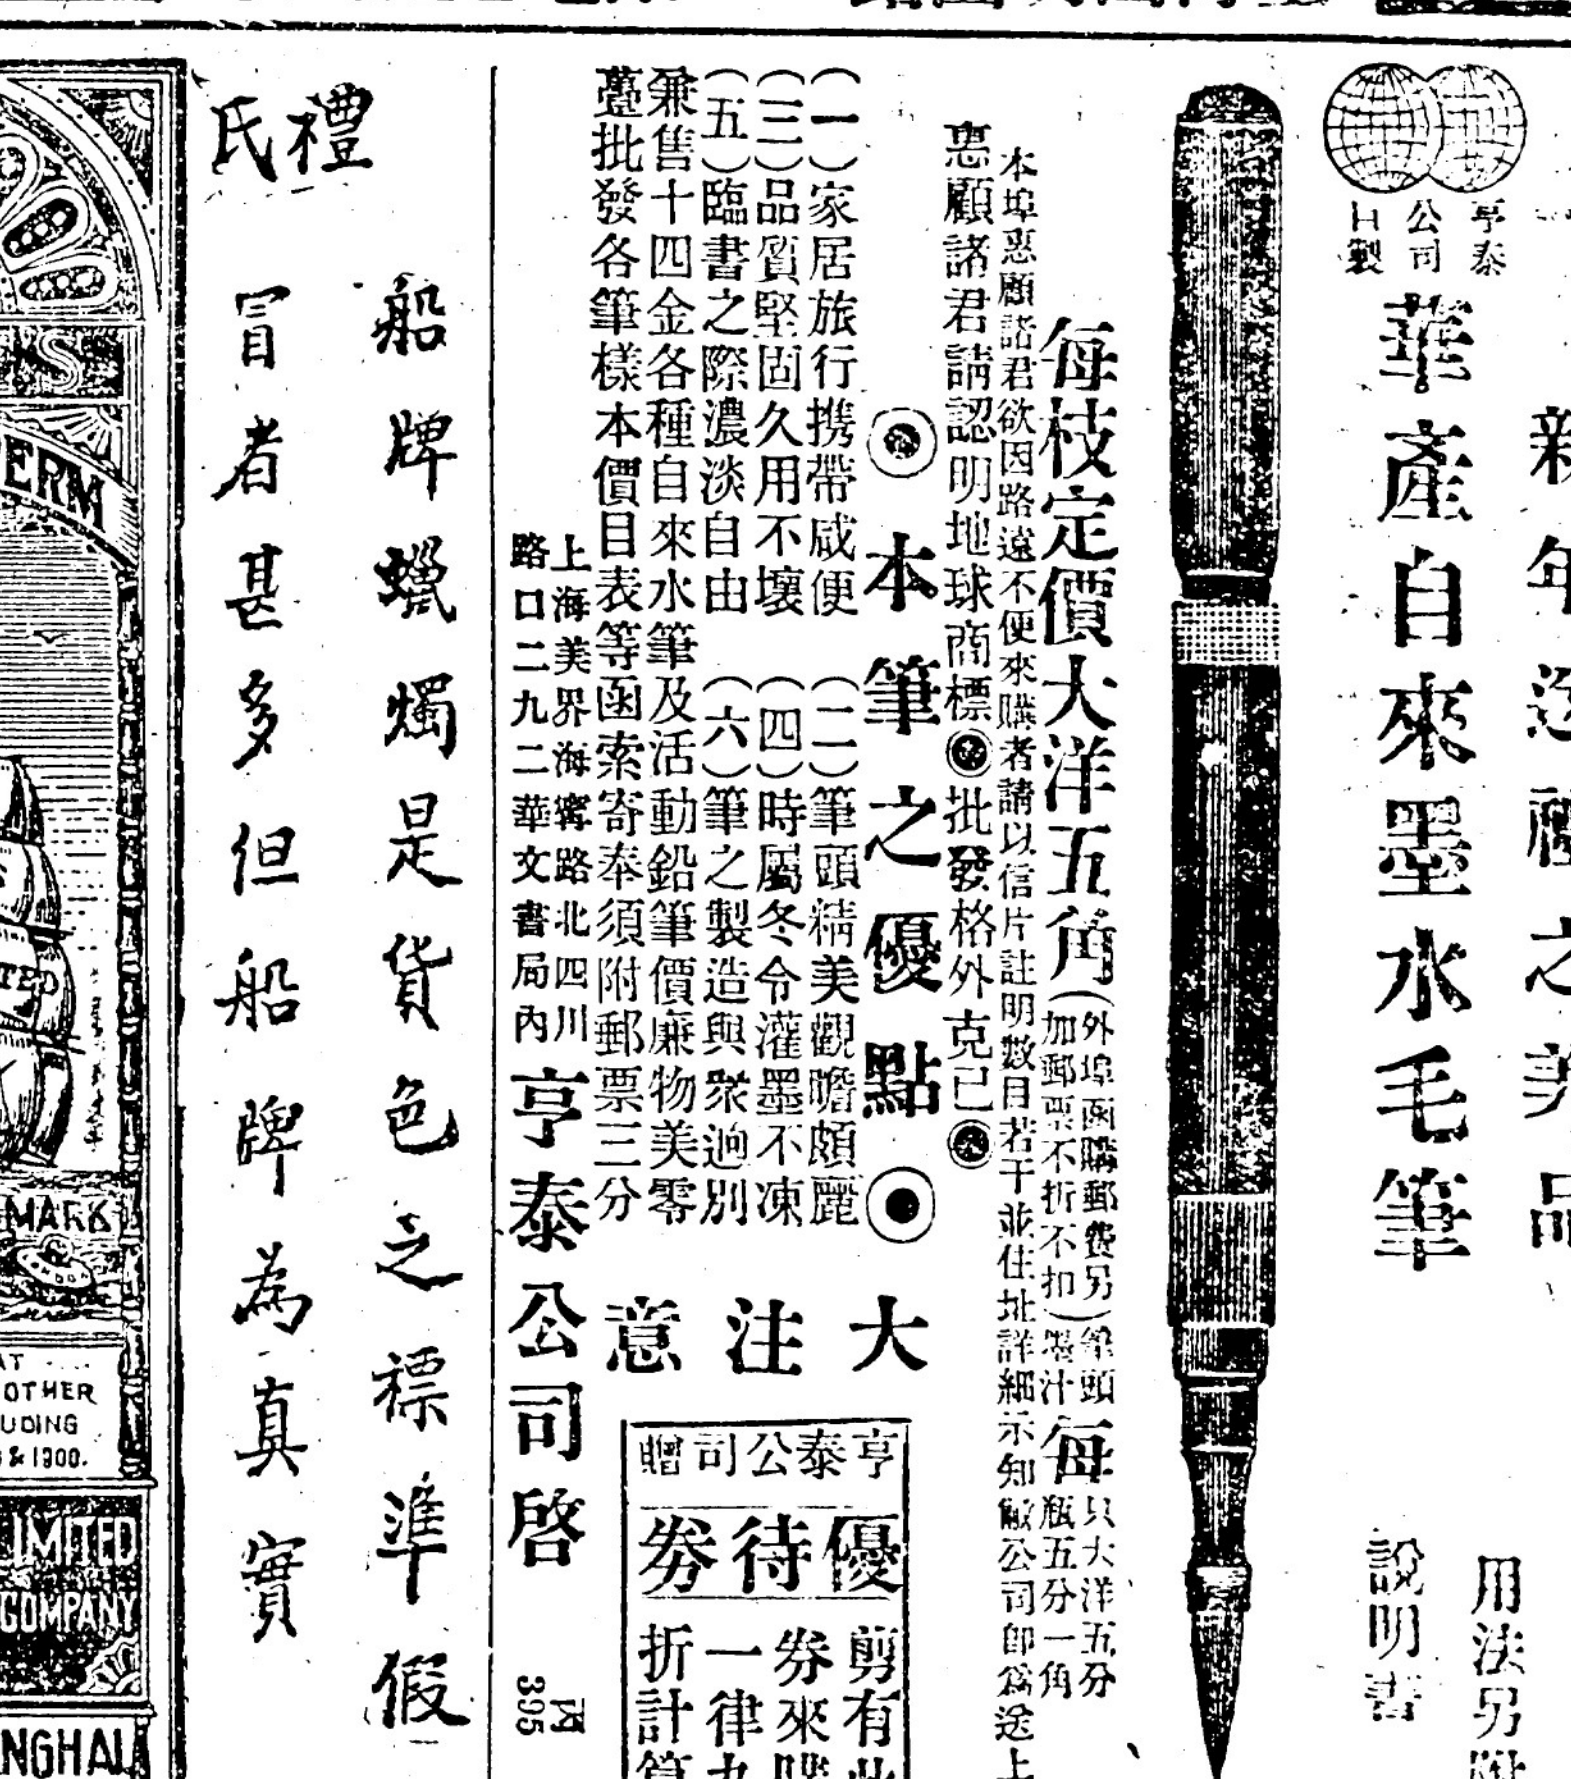 新年送禮之美品
亨泰
公司
日製
華產自來墨水毛筆
用法另附
說明書
每枝定價大洋五角
(外埠函購郵費另
加郵票不折不扣)
筆頭
墨汁
每
只大洋五分
瓶五分一角
本埠惠顧諸君欲因路遠不便來購者請以信片註明數目若干並住址詳細示知敝公司即爲送上
惠顧諸君請認明地球商標◎批發格外克己◎
◎本筆之優點◎
(一)家居旅行携帶咸便 (二)筆頭精美觀瞻頗麗
(三)品質堅固久用不壞 (四)時屬冬令灌墨不凍
(五)臨書之際濃淡自由 (六)筆之製造與衆逈別
兼售十四金各種自來水筆及活動鉛筆價廉物美零
躉批發各筆樣本價目表等函索寄奉須附郵票三分
大注意
亨泰公司贈
優待券
剪有此
券來購
一律九
折計算
上海美界海寧路北四川
路口二九二華文書局內
亨泰公司啓
395
禮氏
船牌蠟燭是貨色之標準假
冒者甚多但船牌為真實
S
ERM
TED
MARK
AT
OTHER
UDING
& 1900.
LIMITED
COMPANY
NGHAI